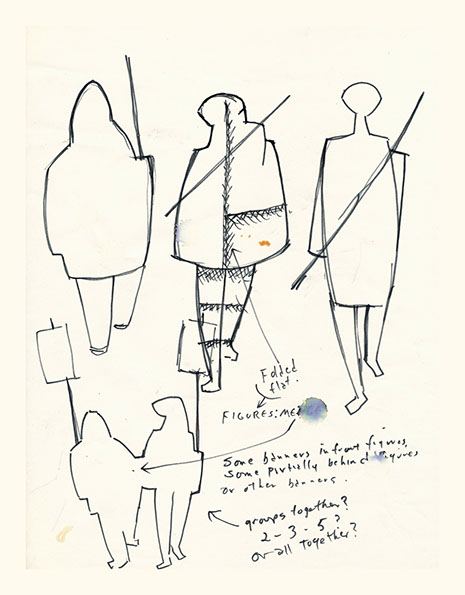 Folded
flat.
FIGURES:
Some banners in front figures,
Some partially behind figures
or other banners.
groups together?
2-3-5?
or all together?